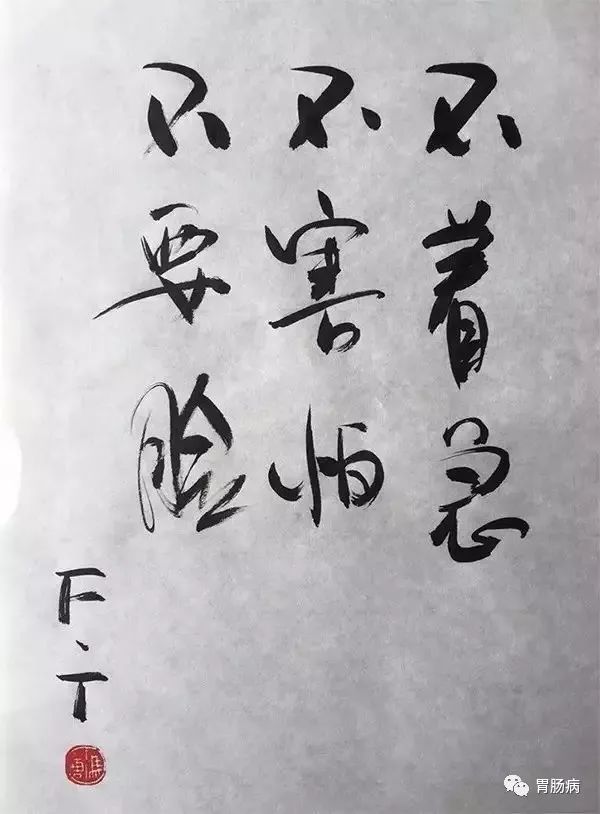 不着急
不害怕
不要脸
F.T
胃肠病